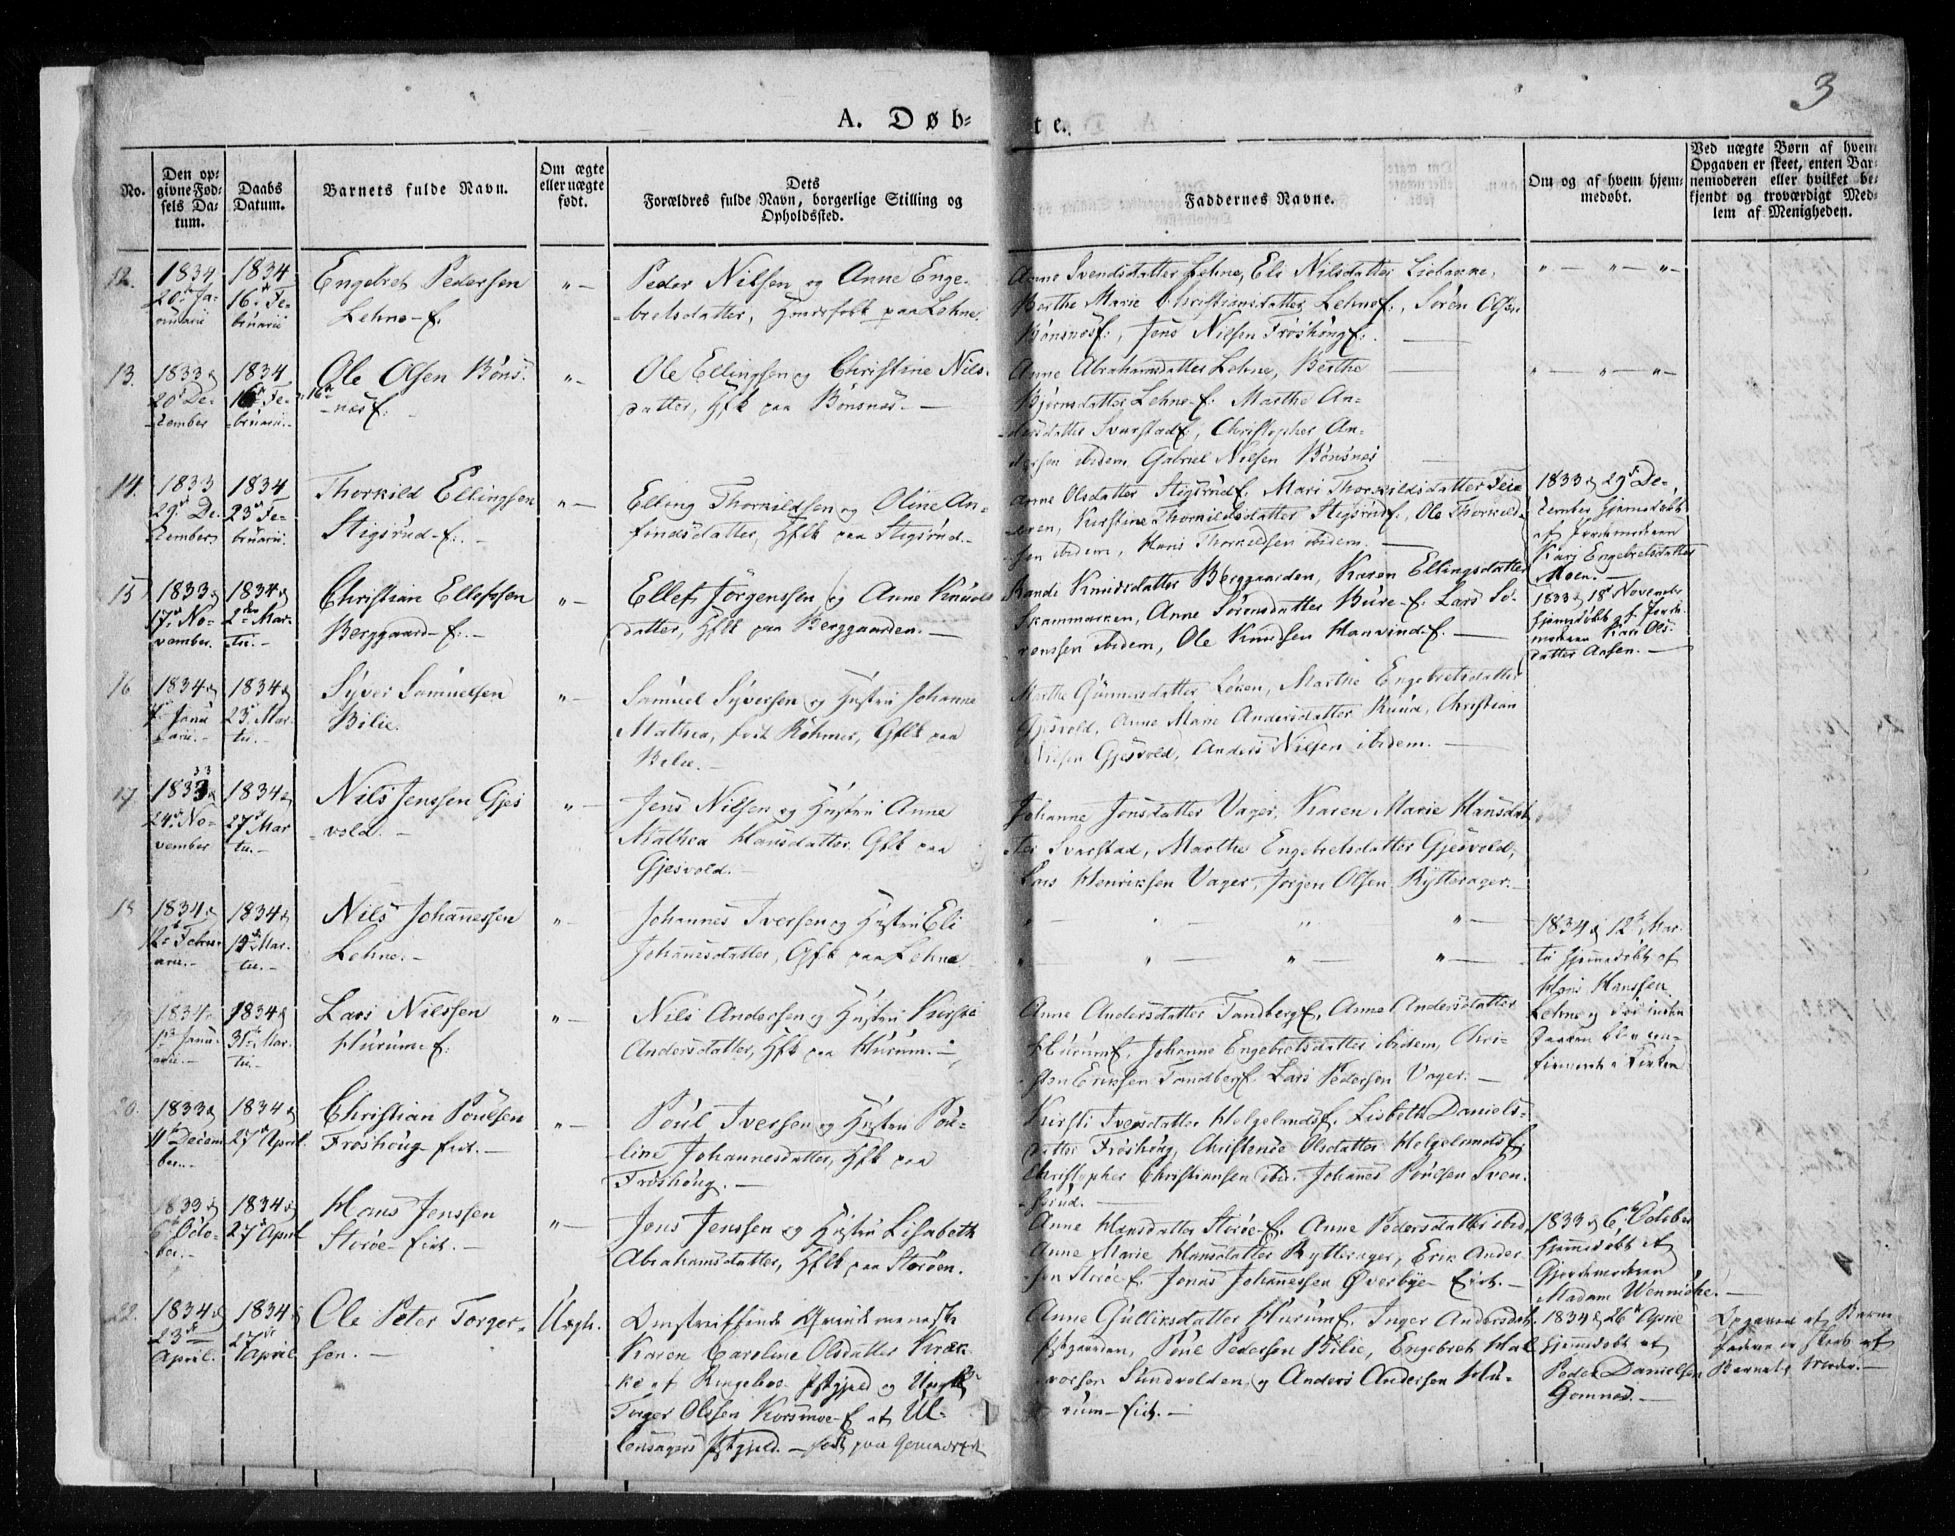 3
A. Døb=
te.
No.
Den op=
givne Fød=
sels Da=
tum.
Daabs
Datum.
Barnets fulde Navn.
Om ægte
eller uægte
født.
Dets
Forældres fulde Navn, borgerlige Stilling og
Opholdssted.
Faddernes Navne.
Om og af hvem hjem=
medøbt.
Ved uægte Børn af hvem
Opgaven er skeet, enten Bar=
nemoderen eller hvilket be=
kjendt og troværdigt Med=
lem af Menigheden.
12.
1834
20de Ja-
nuarii
1834
16de Fe-
bruarii
Engebret Pedersen
Lehne-E.
" —
Peder Nilsen og Anne Enge-
-bretsdatter, Huusfolk paa Lehne.
Anne Svendsdatter Lehne, Eli Nilsdatter
Berthe Marie Christiansdatter Lehne E., Søren Olsen
Bønsnes E., Jens Nielsen Frøshoug E.
" — " — " —
13.
1833
20de De-
-cember
1834
16de Fe-
bruarii.
16de
Ole Olsen Bøns-
-næs E.
" —
Ole Ellingsen og Christine Nils-
datter, Hflk paa Bønsnes. —
Anne Abrahamsdatter Lehne, Berthe
Bjørnsdatter Lehne-E. Marthe An-
-dersdatter Svarstad E, Christopher An-
dersen ibidem, Gabriel Nilsen Bønsnes
" — " — " —
14.
1833
29de De-
cember.
1834
23de Fe-
bruarii.
Thorkild Ellingsen
Stigsrud-E. -
" —
Elling Thorkildsen og Oline An-
findsdatter, Hflk paa Stigsrud. -
Anne Olsdatter Stigsrud E. Mari Thorkildsdatter Fei-
-eren, Kirstine Thorkildsdatter Stigsrud E., Ole Thorkild-
-sen ibidem, Hans Thorkildsen ibidem. —
1833 d 29de De-
cember hjemmedøbt
af Jordemoderen
Kari Engebretsdatter
Moen. —
15
1833
17de No-
vember.
1834
2den Mar-
tii. -
Christian Ellefssen
Berggaard-E. -
" —
Ellef Jörgenssen og Anne Knuds-
datter, Hflk paa Berggaarden. —
Rande Knudsdatter Berggaarden, Karen Ellingsdatter
Skammarken, Anne Sörensdatter Bure-E. Lars Sö-
renssen ibidem, Ole Knudsen Hanvind E. —
1833 d 18de November
hjemmedøbt af Jorde-
moderen Kari Ols-
datter Aasen. —
16
1834
Janu
arii. -
1834
23de Mar-
tii. -
Syver Samuelsen
Bilie.
" —
Samuel Syversen og Hustru Johanne
Mathea, født Röhmer, Gflk paa
Bilie. -
Marthe Gunnersdatter Løken, Marthe Engebretsdatter
Gjesvold, Anne Marie Andersdatter Ruud, Christian
Nilsen Gjesvold, Anders Nilsen ibidem. —
17
1833
33
24de No-
vember
1834
27de Mar
tii. -
Nils Jenssen Gjes
-vold. -
" —
Jens Nilsen og Hustru Anne
Mathea Hansdatter, Gflk paa
Gjesvold. -
Johanne Jonsdatter Vager, Karen Marie Hansdat
ter Svarstad, Marthe Engebretsdatter Gjesvold,
Lars Henriksen Vager, Jørgen Olsen Rytterager. -
18
1834
12te Febru-
arii. -
1834
Mar-
tii. -
Nils Johannessen
Lehne. -
" —
Johannes Iversen og Hustru Eli
Johannesdatter, Gflk paa Lehne
" — " — " — " —
" — " — " — " —
1834 d 12te Mar-
tii hjemmedøbt af
Hans Hanssen
Lehne og død inden
Daaben blev con-
firmeret i Kirken
19
1834
Janu-
arii. -
1834
31te Mar-
tii. -
Lars Nilssen
Hurum-E.
" —
Nils Andersen og Hustru Kirsti
Andersdatter, Hflk paa Hurum. -
Anne Andersdatter Tandberg E, Anne Andersdatter
Hurum E, Johanne Engebretsdatter ibidem, Chri-
-sten Eriksen Tandberg E. Lars Pedersen Vager. —
20.
1833
Decem
ber. -
1834
27de April.
Christian Poulsen
Frøshoug-Eiet. -
" —
Poul Iversen og Hustru Pou-
-line Johannesdatter, Hflk paa
Frøshoug. —
Kirsti Iversdatter Helgelands E. Lisbeth Daniels-
datter Frøshoug, Christense Olsdatter Helgelands E
Christopher Christiansen ibid. Johannes Poulsen Svens-
rud. —
1833
6te Octo-
ber. -
1834
27de April
Hans Jenssen
Storøe-Eiet. -
" —
Jens Jenssen og Hustru Lisabeth
Abrahamsdatter, Hflk paa Storøen.
Anne Hansdatter Storøe-E. Anne Pedersdatter ibid
Anne Marie Hansdatter Rytterager, Erik Ander-
-sen Storøe E. Jonas Johannessen Øverbye-Eiet. —
1833 d 6te October
hjemmedøbt af
Gjordemoderen
Madam Wennicke. -
22.
1834
23de
April.
1834
27de
April
Ole Peter Torger-
sen. -
Uægte.
Omstreifende Qvindemenneske
Karen Caroline Olsdatter
af Ringeboe Pstgjeld og Ungk
Torger Olsen Korsmoe-E af Ul-
lensagers Pstgjeld. — født paa Gomnæs Eiet
Anne Gulliksdatter Hurum E, Inger Andersdat.
Pstgaarden, Poul Pedersen Bilie, Engebret Hal
vorsen Sundvolden og Anders Andersen Hu-
rum-Eiet. —
1834 d 26de April
hjemmedøbt af
Peder Danielsen
Gomnes. —
Opgaven af Barne
faderen er skeet af
Barnets Moder. —